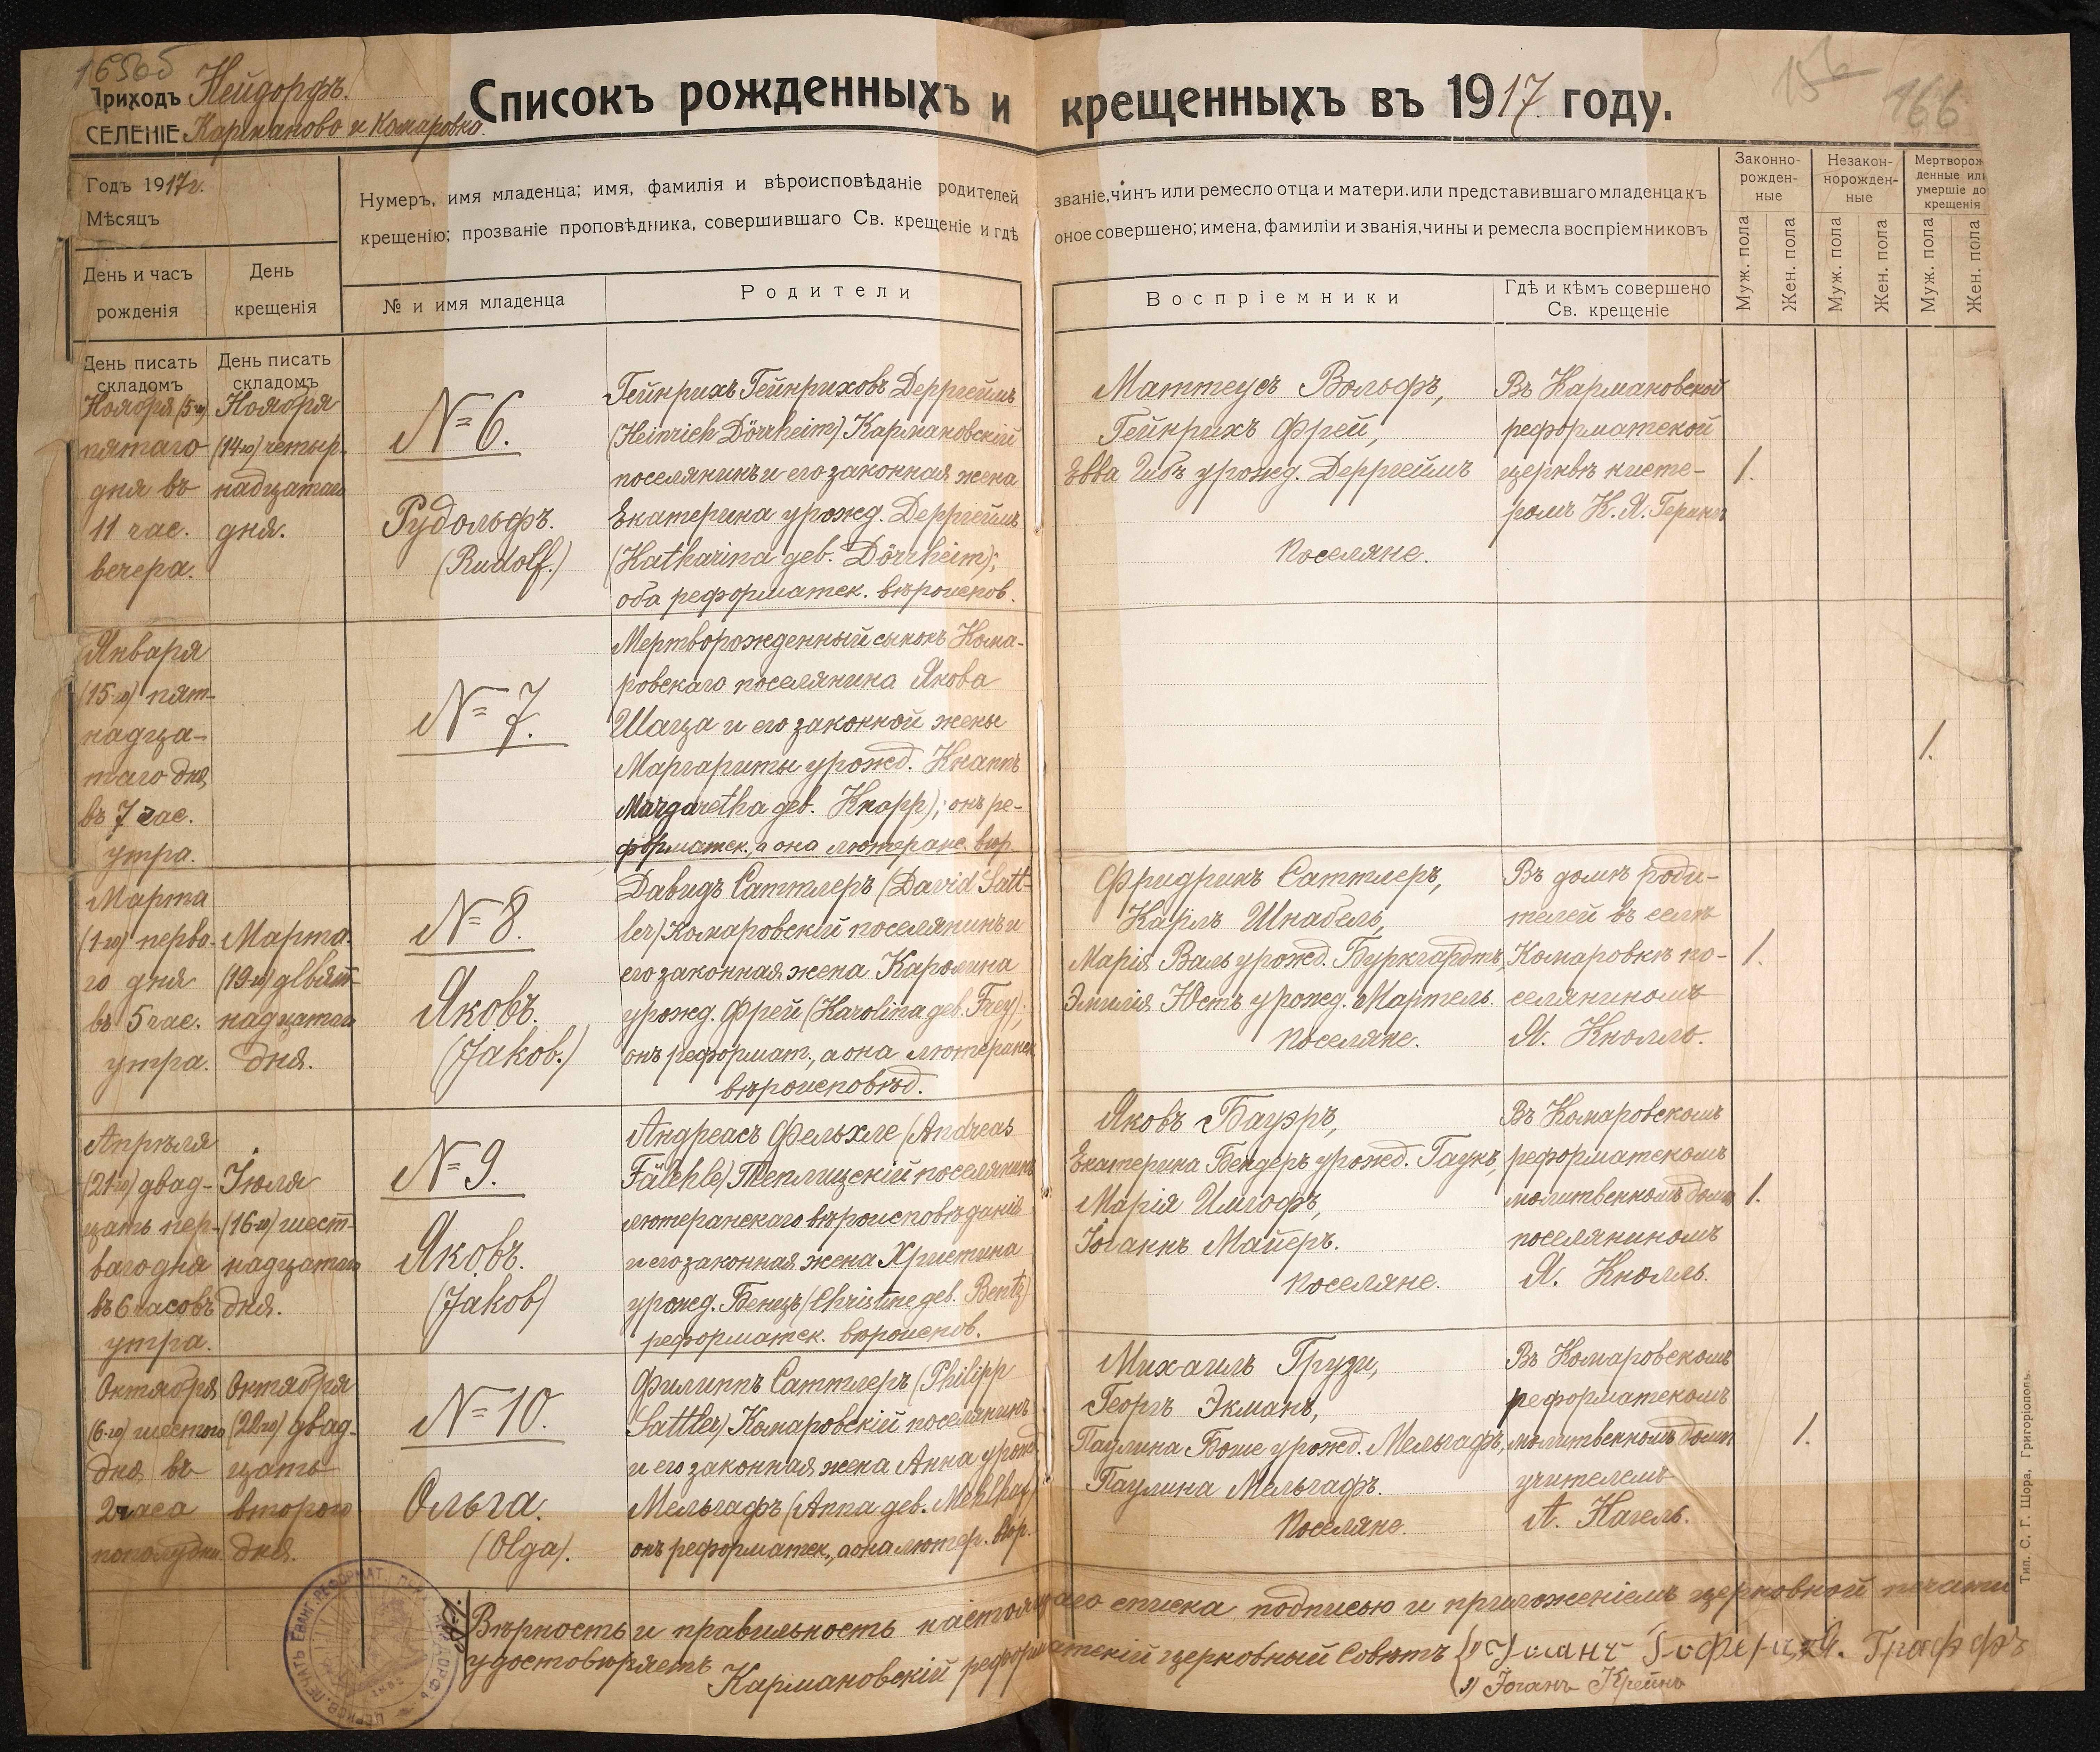 165об
Приходъ Нейдорфъ.
СЕЛЕНІЕ Карманово и Комаровка.
Списокъ рожденныхъ и крещенныхъ въ 1917 году.
156
166
Годъ 1917 г.
Мѣсяцъ
Нумеръ, имя младенца; имя, фамилія и вѣроисповѣданіе родителей званіе, чинъ или ремесло отца и матери. или представившаго младенца къ
крещенію; прозваніе проповѣдника, совершившаго Св. крещеніе и гдѣ оное совершено; имена, фамиліи и званія, чины и ремесла воспріемниковъ
Законно-
рожден-
ные
Незакон-
норожден-
ные
Мертворож
денные или
умершіе до
крещенія
День и часъ
рожденія
День
крещенія
№ и имя младенца
Родители
Воспріемники
Гдѣ и кѣмъ совершено
Св. крещеніе
Муж. пола
Жен. пола
Муж. пола
Жен. пола
Муж. пола
Жен. пола
День писать
складомъ
День писать
складомъ
Ноября (5-го)
пятаго
дня въ
11 час.
вечера.
Ноября
(14-го) четыр-
надцатаго
дня.
№ 6.
Рудольфъ.
(Rudolf.)
Гейнрихъ Гейнриховъ Дерргеймъ
(Heinrich Dörrheim) Кармановскій
поселянинъ и его законная жена
Екатерина урожд. Дерргеймъ
(Katharina geb. Dörrheim);
оба реформатск. вѣроиспов.
Маттеусъ Вольфъ,
Гейнрихъ Фрей,
Евва Гибъ урожд. Дерргеймъ
Поселяне.
Въ Кармановской
реформатской
церквѣ кисте-
ромъ К. Я. Геринг
1.
Января
(15-го) пят-
надца-
таго дня
въ 7 час.
утра.
№ 7.
Мертворожденный сынокъ Кома-
ровскаго поселянина Якова
Шаца и его законной жены
Маргариты урожд. Кнаппъ
Margaretha geb. Knapp); онъ ре-
форматск., а она лютеранс. вѣр.
1.
Марта
(1-го) перва-
го дня
въ 5 час.
утра.
Марта
(19-го) девят-
надцатаго
дня.
№ 8.
Яковъ.
(Jakob.)
Давидъ Саттлеръ (David Satt-
ler) Комаровскій поселянинъ и
его законная жена Каролина
урожд. Фрей (Karolina geb. Frey);
онъ реформат., а она лютеранск
вѣроисповѣд.
Фридрихъ Саттлеръ,
Карлъ Шнабель,
Марія Валь урожд. Буркгардтъ,
Эмилія Юстъ урожд. Мартель.
Поселяне.
Въ домѣ роди-
телей въ селѣ
Комаровкѣ по-
селяниномъ
Я. Кнолль.
1.
Апрѣля
(21-го) двад-
цать пер-
ваго дня
въ 6 часовъ
утра.
Іюля
(16-го) шест-
надцатаго
дня.
№ 9.
Яковъ.
(Jakob)
Андреасъ Фельхле (Andreas
Fälchle) Теплицскій поселянинъ
лютеранскаго вѣроисповѣданія
и его законная жена Христина
урожд. Бенцъ (Christine geb. Bentz)
реформатск. вѣроиспов.
Яковъ Бауэръ,
Екатерина Бендеръ урожд. Гаукъ,
Марія Имгофъ,
Іоганнъ Майеръ.
Поселяне.
Въ Комаровскомъ
реформатскомъ
молитвенномъ домѣ
поселяниномъ
Я. Кнолль.
1.
Октября
(6-го) шестого
дня въ
2 часа
пополудни
Октября
(22го) двад-
цать
второго
дня.
№ 10.
Ольга.
(Olga).
Филиппъ Саттлеръ (Philipp
Sattler) Комаровскій поселянинъ
и его законная жена Анна урожд
Мельгафъ (Anna geb. Mehlhaf)
онъ реформатск., а она лютер. вѣр.
Михаилъ Грузи,
Георгъ Экманъ,
Паулина Боше урожд. Мельгафъ,
Паулина Мельгафъ.
Поселяне.
Въ Комаровскомъ
реформатскомъ
молитвенномъ домѣ
учителемъ
А. Нагель.
1.
Вѣрность и правильность настоящаго списка подписью и приложеніемъ церковной печати
удостовѣряетъ
Кармановскій реформатскій церковный Совѣтъ
Я. Граффъ
2) Іоганъ Крейнъ
Тип. С. Г. Шора, Григоріополь.